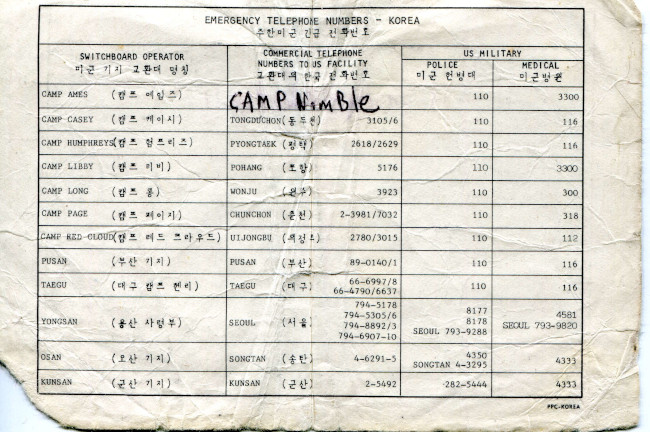 EMERGENCY TELEPHONE NUMBERS - KOREA
주한미군 긴급 전화번호
SWITCHBOARD OPERATOR
미군 기지 교환대 명칭
COMMERCIAL TELEPHONE
NUMBERS TO US FACILITY
교환대의 한국 전화번호
US MILITARY
POLICE
미군 헌병대
MEDICAL
미군병원
CAMP AMES (캠프 에임즈) CAMP Numble 110 3300
CAMP CASEY (캠프 케이시) TONGDUCHON (동두천) 3105/6 110 116
CAMP HUMPHREYS (캠프 험프리즈) PYONGTAEK (평택) 2618/2629 110 116
CAMP LIBBY (캠프 리비) POHANG (포항) 5176 110 3300
CAMP LONG (캠프 롱) WONJU (원주) 3923 110 300
CAMP PAGE (캠프 페이지) CHUNCHON (춘천) 2-3981/7032 110 318
CAMP RED CLOUD (캠프 레드 크라우드) UIJONGBU (의정부) 2780/3015 110 112
PUSAN (부산 기지) PUSAN (부산) 89-0140/1 110 116
TAEGU (대구 캠프 헨리) TAEGU (대구) 66-6997/8 110 116
66-4790/6637
YONGSAN (용산 사령부) SEOUL (서울) 794-5178
794-5305/6
794-8892/3
794-6907-10
8177
8178
SEOUL 793-9288
4581
SEOUL 793-9820
OSAN (오산 기지) SONGTAN (송탄) 4-6291-5 4350 4333
SONGTAN 4-3295
KUNSAN (군산 기지) KUNSAN (군산) 2-5492 282-5444 4333
PPC-KOREA